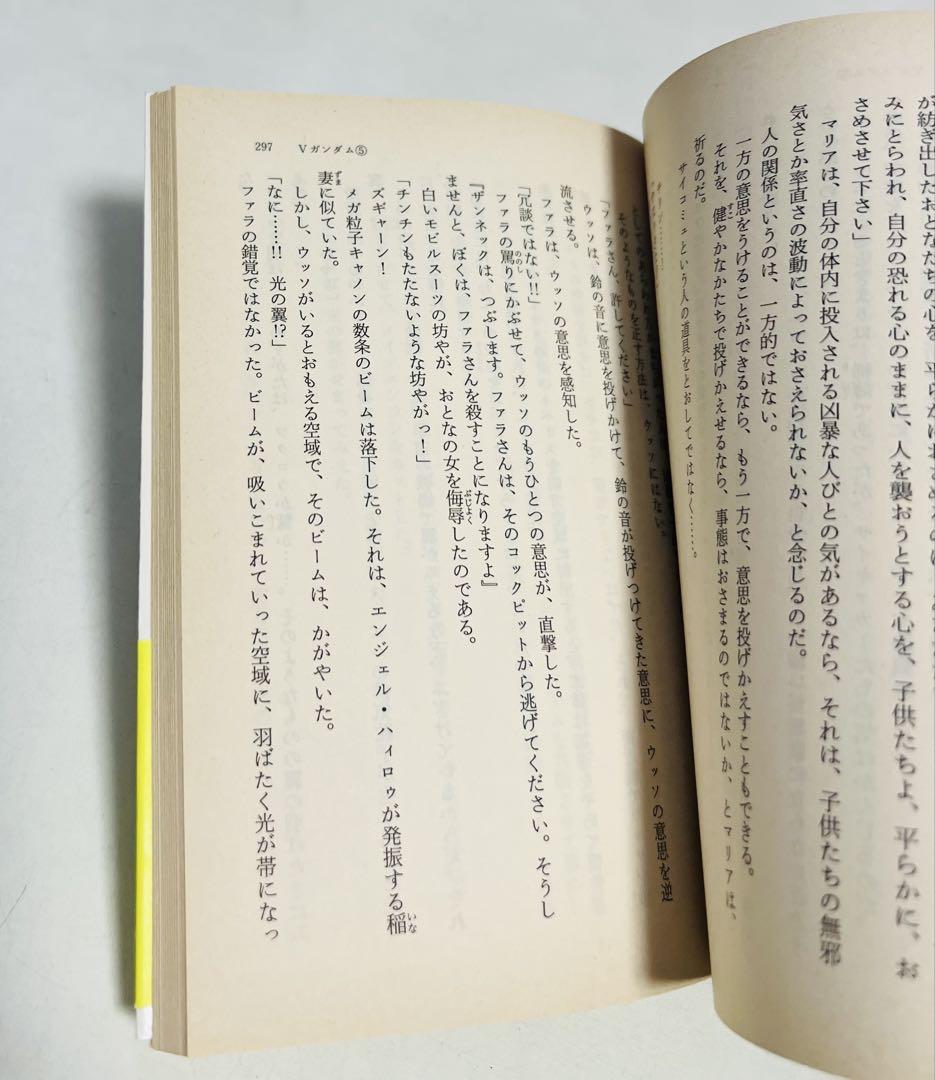 が紡ぎ出したおとなたちの心を、平らかにおさめるのは、
みにとらわれ、自分の恐れる心のままに、人を襲おうとする心を、子供たちよ、平らかに、お
さめさせて下さい」
マリアは、自分の体内に投入される凶暴な人びとの気があるなら、それは、子供たちの無邪
気さとか率直さの波動によっておさえられないか、と念じるのだ。
人の関係というのは、一方的ではない。
一方の意思をうけることができるなら、もう一方で、意思を投げかえすこともできる。
それを、健やかなかたちで投げかえせるなら、事態はおさまるのではないか、とマリアは、
祈るのだ。
サイコミュという人の道具をとおしてではなく……。
297 Vガンダム⑤
そのようなものを正す方法は、ウッソにはない。
「ファラさん、許してください」
ウッソは、鈴の音に意思を投げかけて、鈴の音が投げつけてきた意思に、ウッソの意思を逆
流させる。
ファラは、ウッソの意思を感知した。
「冗談ではない!!」
ファラの罵りにかぶせて、ウッソのもうひとつの意思が、直撃した。
『ザンネックは、つぶします。ファラさんは、そのコックピットから逃げてください。そうし
ませんと、ぼくは、ファラさんを殺すことになりますよ』
白いモビルスーツの坊やが、おとなの女を侮辱したのである。
「チンチンもたたないような坊やがっ!」
ズギャーン!
メガ粒子キャノンの数条のビームは落下した。それは、エンジェル・ハイロゥが発振する稲
妻に似ていた。
しかし、ウッソがいるとおもえる空域で、そのビームは、かがやいた。
「なに……!! 光の翼!?」
ファラの錯覚ではなかった。ビームが、吸いこまれていった空域に、羽ばたく光が帯になっ